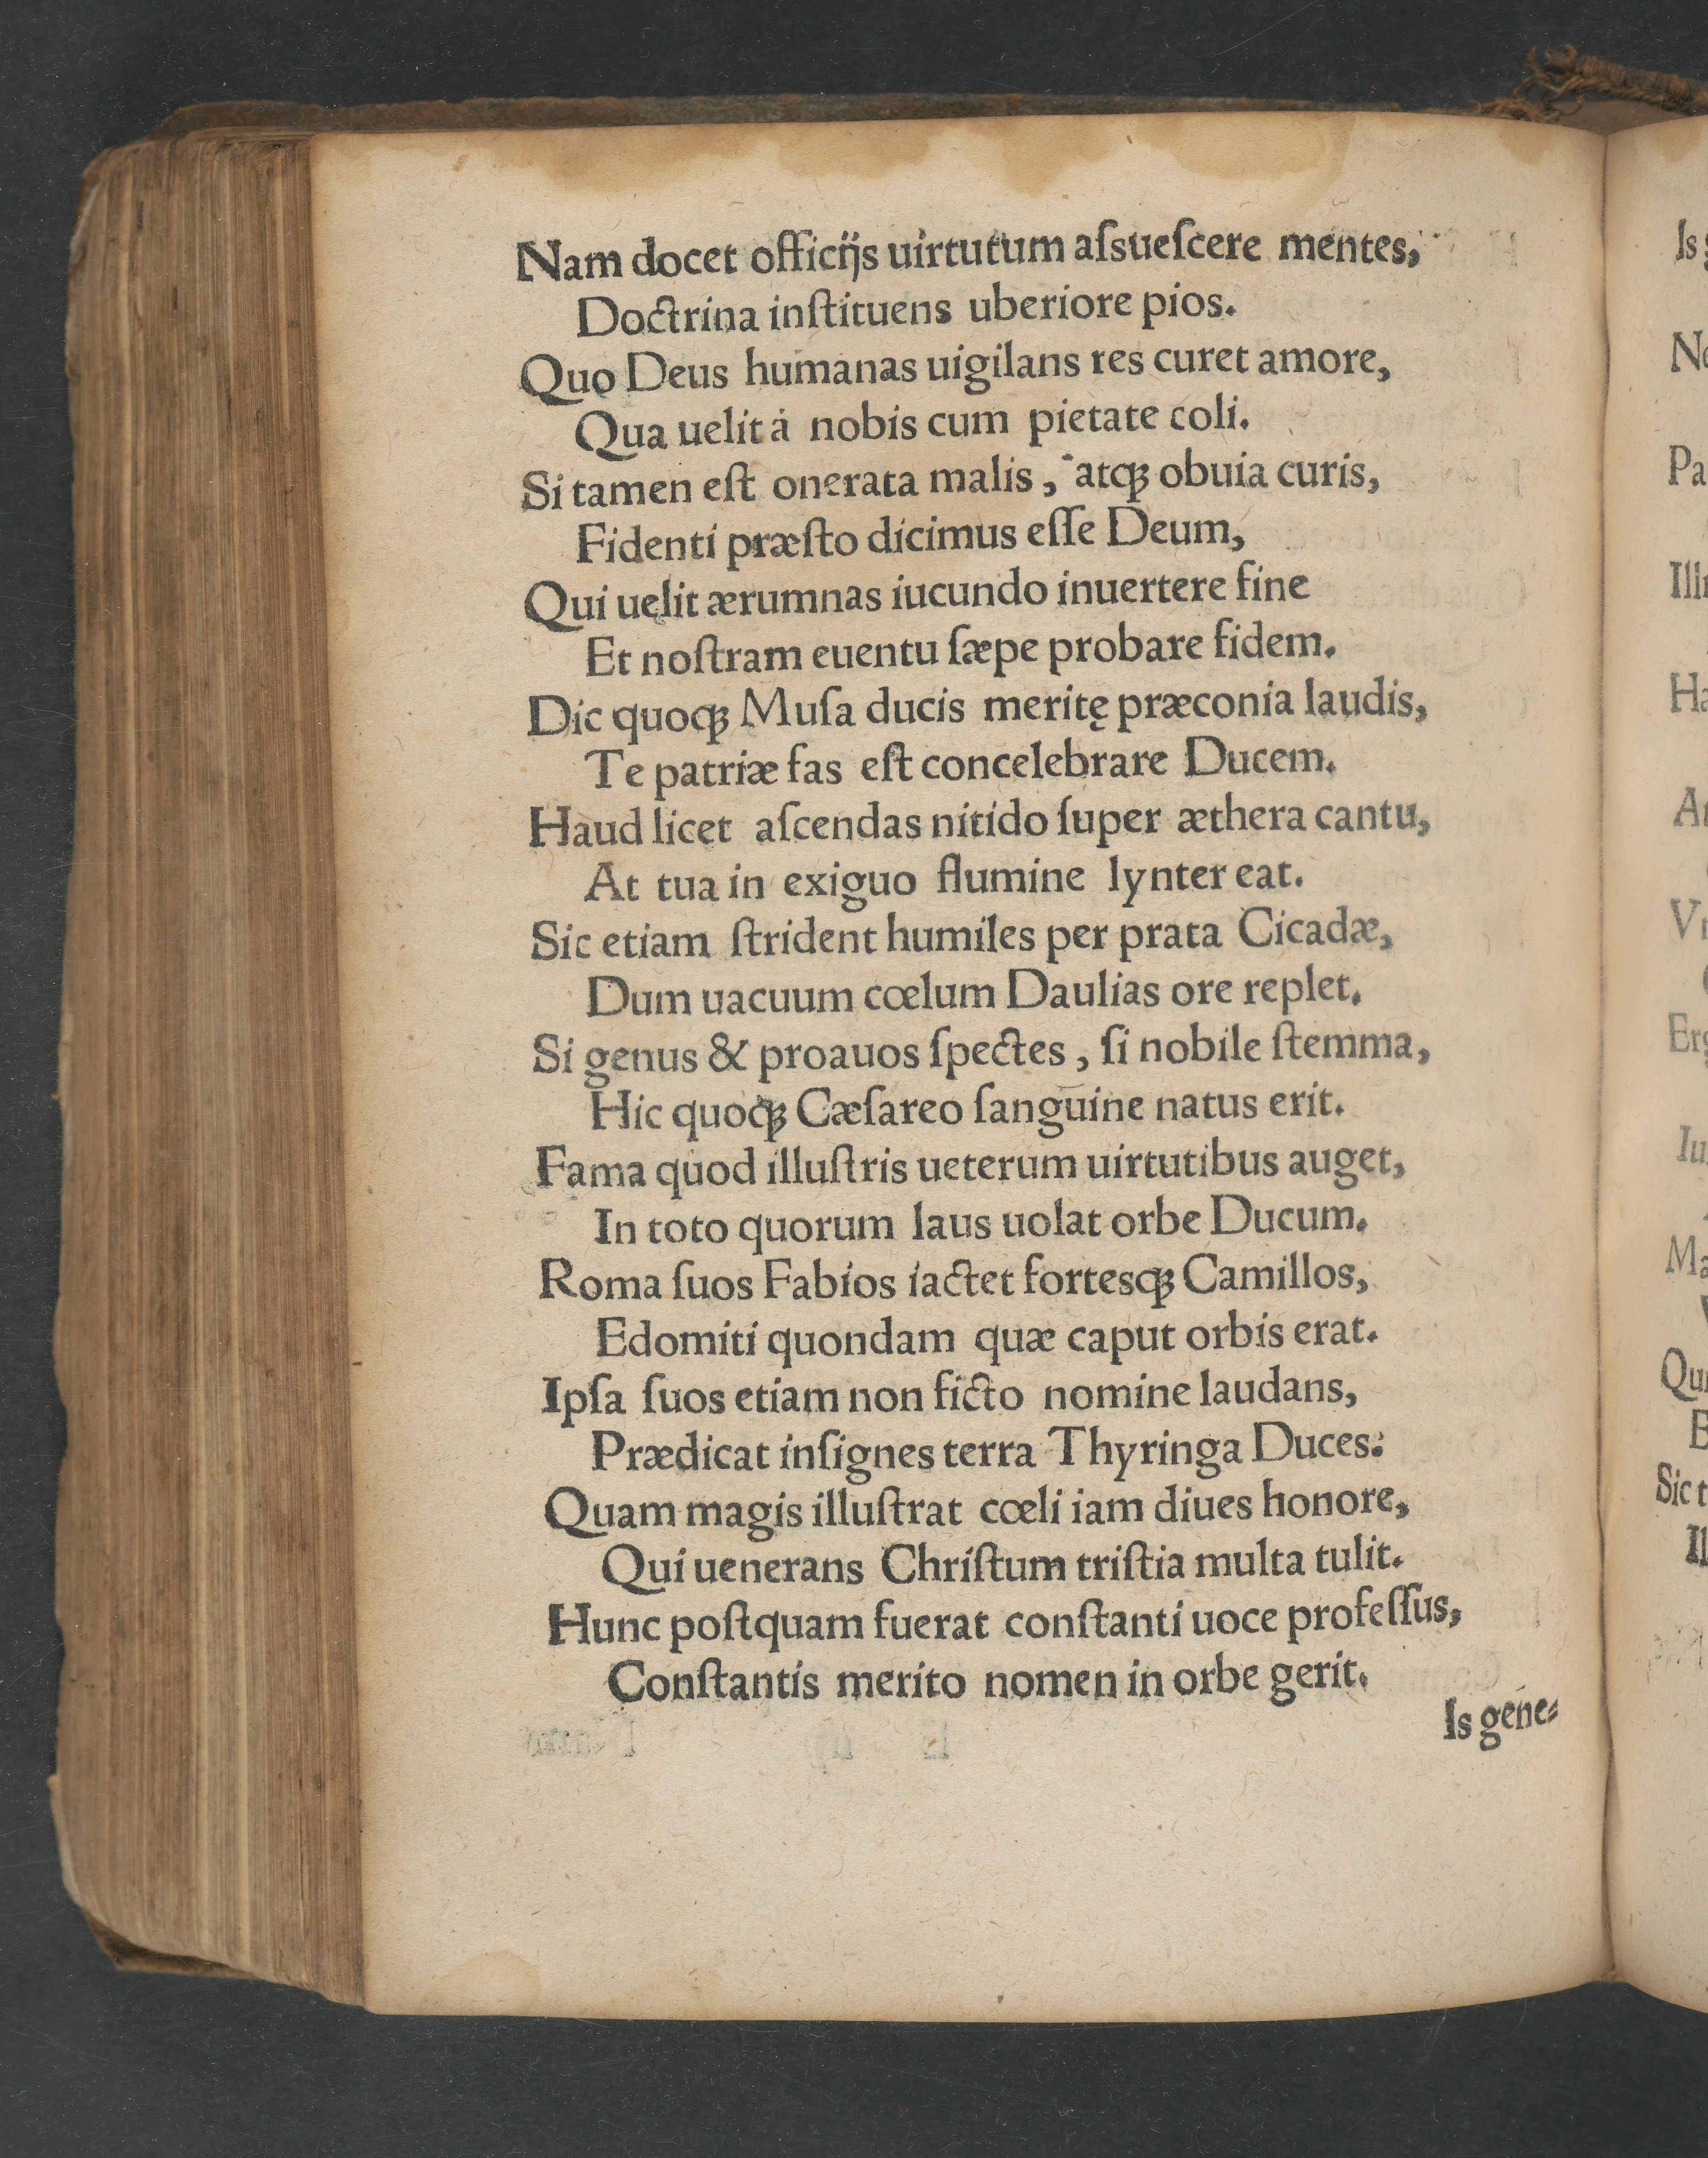 Nam docet officijs uirtutum aſsueſcere mentes,
Doctrina inſtituens uberiore pios.
Quo Deus humanas uigilans res curet amore,
Qua uelit á nobis cum pietate coli.
Si tamen eſt onerata malis, atqꝫ obuia curis,
Fidenti præſto dicimus eſſe Deum,
Qui uelit ærumnas iucundo inuertere fine
Et noſtram euentu ſæpe probare fidem.
Dic quoqꝫ Muſa ducis meritę præconia laudis,
Te patriæ fas eſt concelebrare Ducem.
Haud licet aſcendas nitido ſuper æthera cantu,
At tua in exiguo flumine lynter eat.
Sic etiam ſtrident humiles per prata Cicadæ,
Dum uacuum cœlum Daulias ore replet.
Si genus & proauos ſpectes, ſi nobile ſtemma,
Hic quoqꝫ Cæſareo ſanguine natus erit.
Fama quod illuſtris ueterum uirtutibus auget,
In toto quorum laus uolat orbe Ducum.
Roma ſuos Fabios iactet fortesqꝫ Camillos,
Edomiti quondam quæ caput orbis erat.
Ipſa ſuos etiam non ficto nomine laudans,
Prædicat inſignes terra Thyringa Duces:
Quam magis illuſtrat cœli iam diues honore,
Qui uenerans Chriſtum triſtia multa tulit.
Hunc poſtquam fuerat conſtanti uoce profeſſus,
Conſtantis merito nomen in orbe gerit.
Is gene⸗